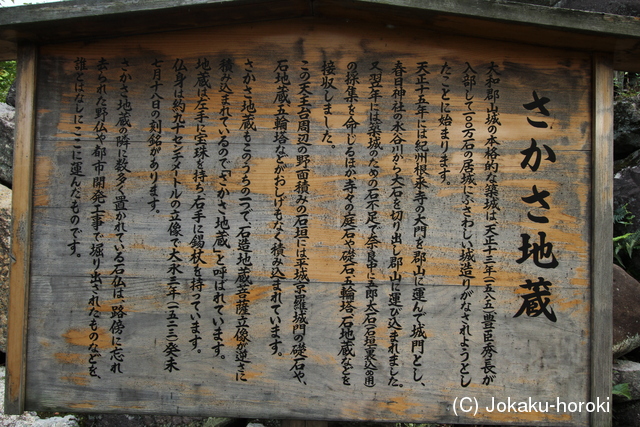 さかさ地蔵
大和郡山城の本格的な築城は、天正十三年(一五八五)豊臣秀長が
入部して一〇〇万石の居城にふさわしい城造りがなされようとし
たことに始まります。
天正十五年には紀州根来寺の大門を郡山に運んで城門とし、
春日神社の水谷川から大石を切り出し郡山に運び込まれました。
又翌年には築城のための石不足で奈良中に五郎太石(石垣の裏込の用)
の採集を命じるほか寺々の庭石や礎石・五輪塔・石地蔵などを
接収しました。
この天主台周辺の野面積みの石垣には平城京羅城門の礎石や、
石地蔵・五輪塔などがおしげもなく積み込まれています。
さかさ地蔵もこのうちの一つで、石造地蔵菩薩立像が逆さに
積み込まれているので「さかさ地蔵」と呼ばれています。
地蔵は左手に宝珠を持ち右手に錫杖を持っています。
仏身は約九十センチメートルの立像で大永三年(一五二三)癸未
七月十八日の刻銘があります。
さかさ地蔵の隣に数多く置かれている石仏は、路傍に忘れ
去られた野仏や都市開発工事で堀り出されたものなどを、
誰とはなしにここに運んだものです。
(C) Jokaku-horoki